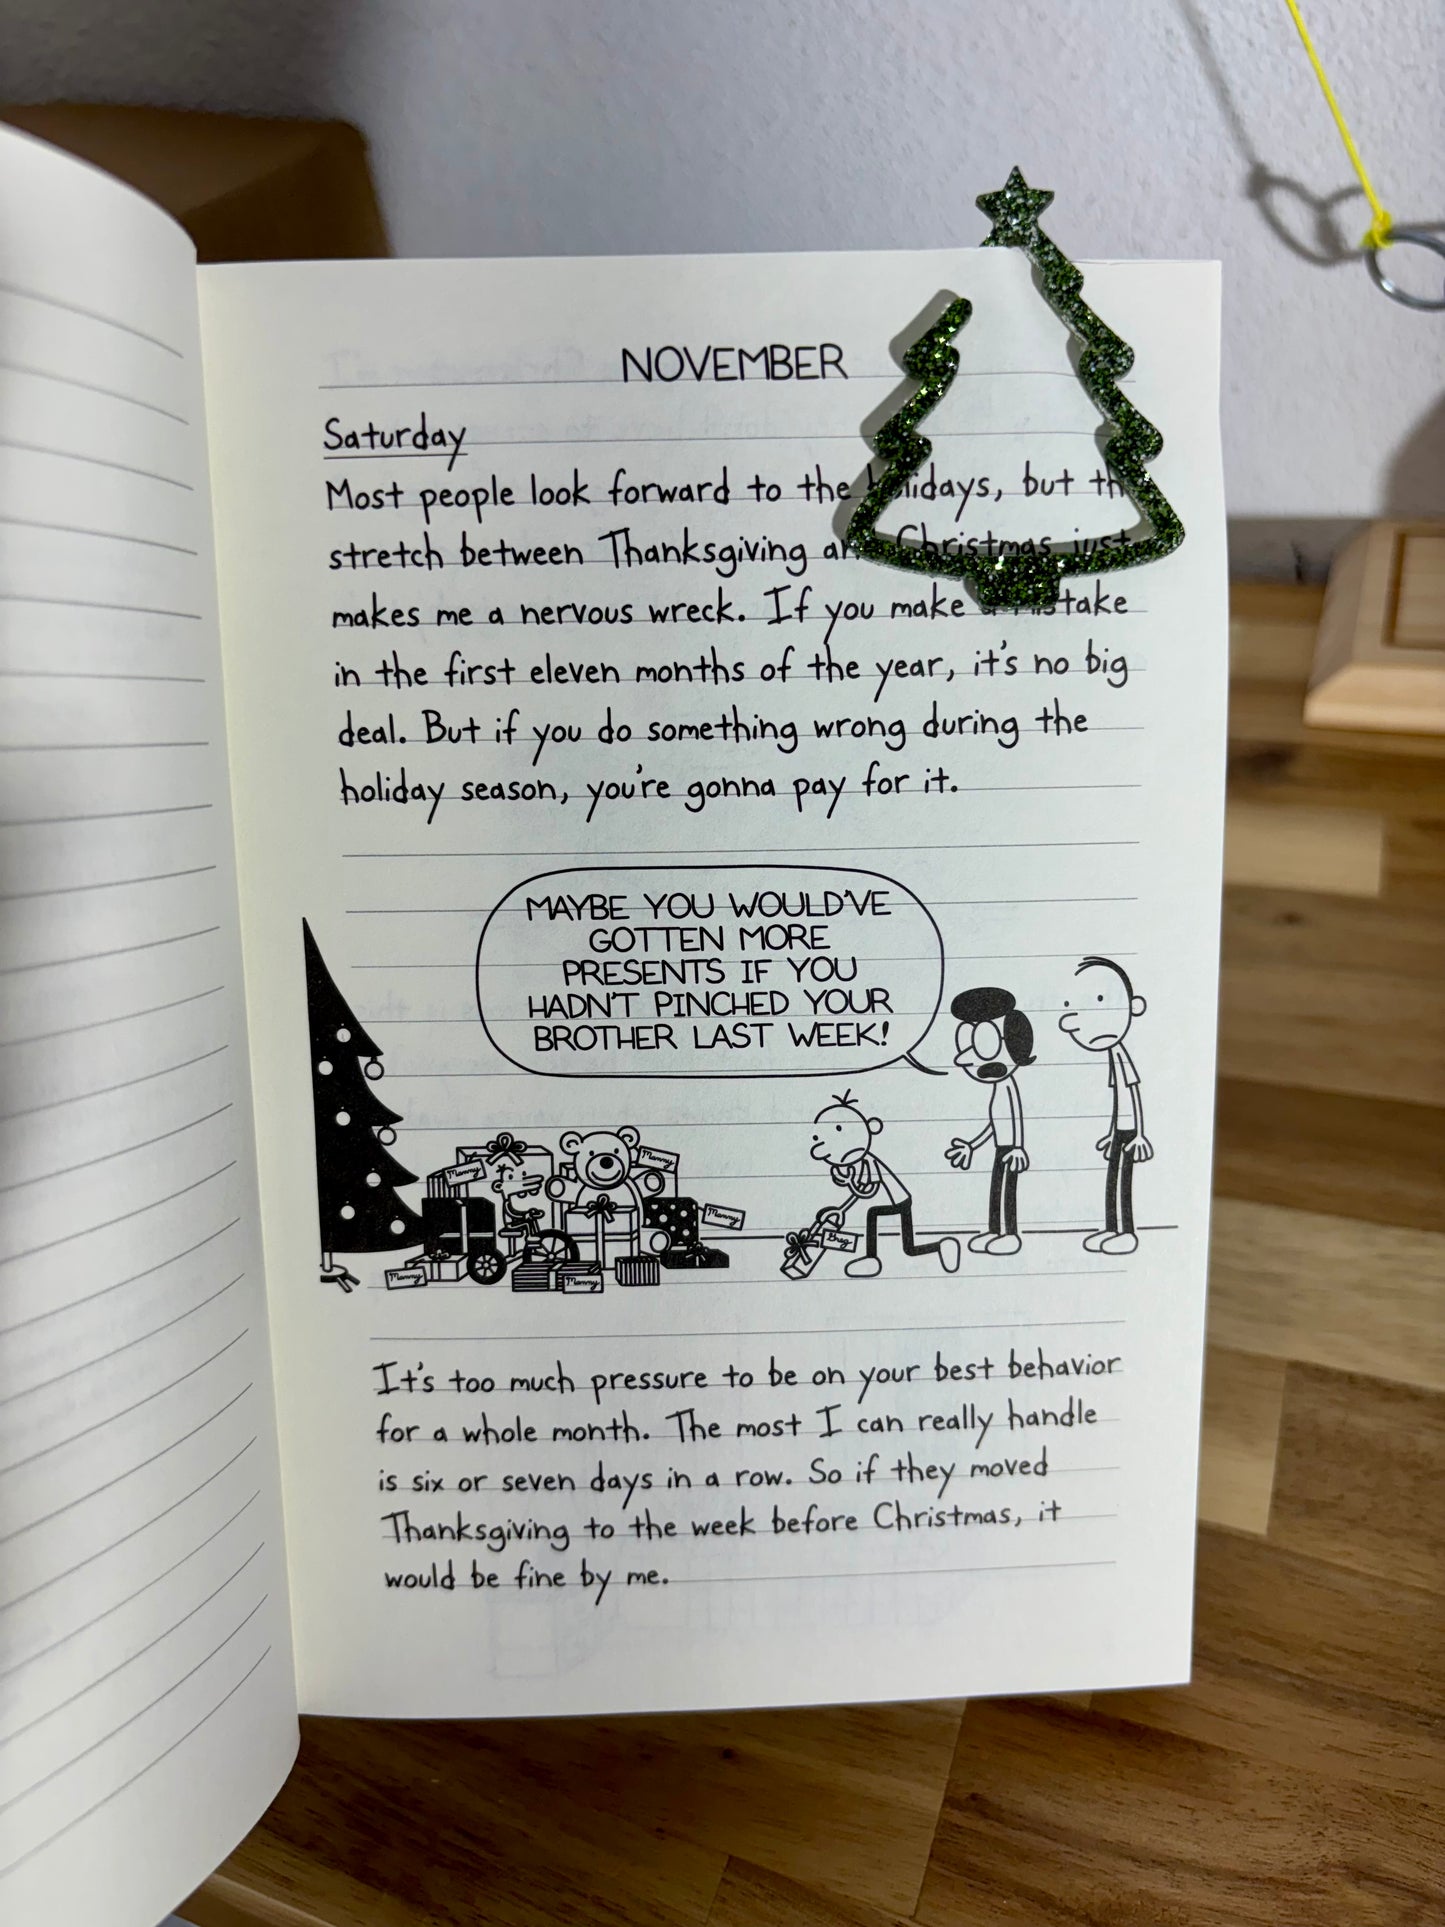 NOVEMBER
Saturday
Most people look forward to the holidays, but
stretch between Thanksgiving and Christmas just
makes me a nervous wreck. If you make a mistake
in the first eleven months of the year, it's no big
deal. But if you do something wrong during the
holiday season, you're gonna pay for it.
MAYBE YOU WOULD'VE
GOTTEN MORE
PRESENTS IF YOU
HADN'T PINCHED YOUR
BROTHER LAST WEEK!
Manny
Manny
Manny
Greg
Manny
Manny
It's too much pressure to be on your best behavior
for a whole month. The most I can really handle
is six or seven days in a row. So if they moved
Thanksgiving to the week before Christmas, it
would be fine by me.